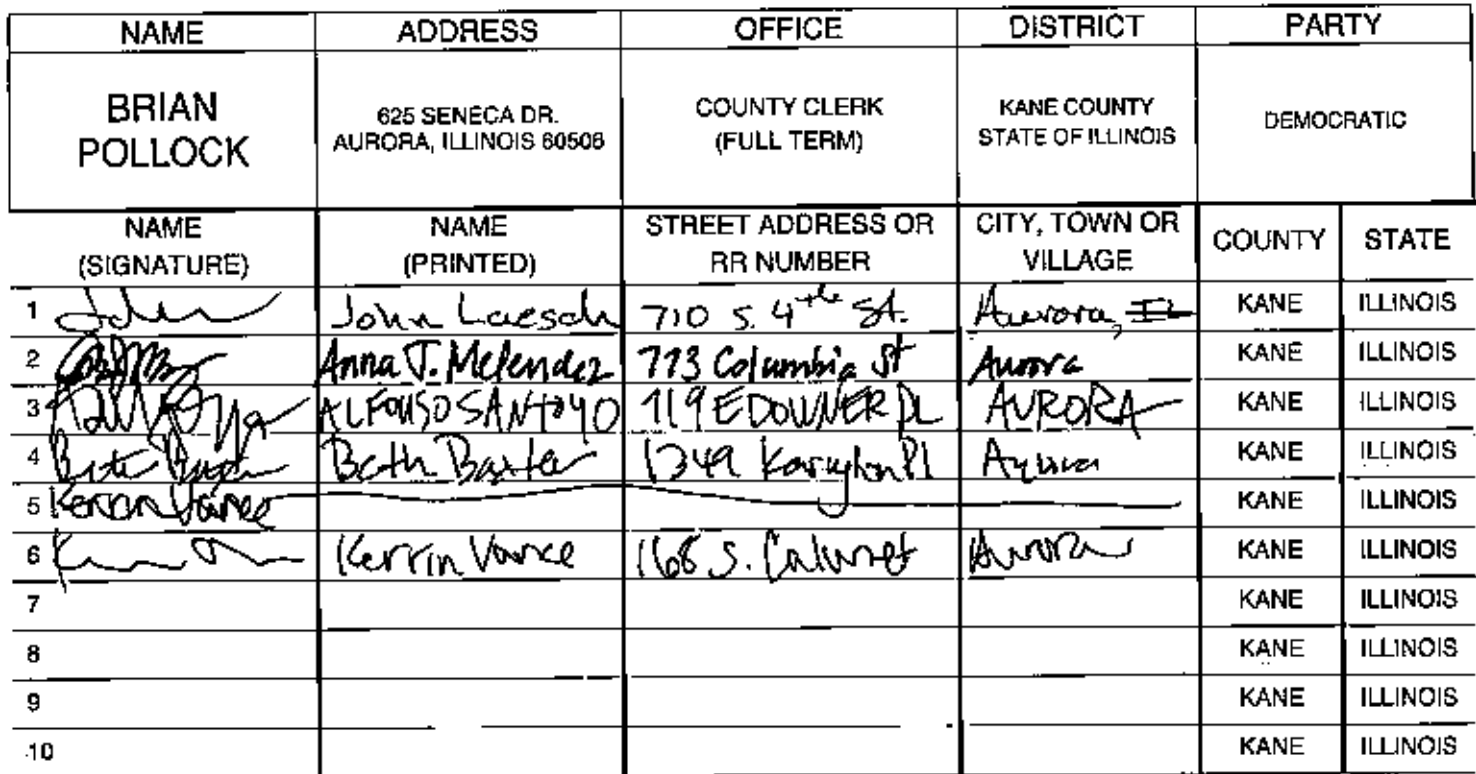 NAME ADDRESS OFFICE DISTRICT PARTY
BRIAN POLLOCK 625 SENECA DR. AURORA, ILLINOIS 60506 COUNTY CLERK (FULL TERM) KANE COUNTY STATE OF ILLINOIS DEMOCRATIC
NAME (SIGNATURE) NAME (PRINTED) STREET ADDRESS OR RR NUMBER CITY, TOWN OR VILLAGE COUNTY STATE
1 John Laesch 710 S. 4th St. Aurora, IL KANE ILLINOIS
2 Anna J. Melendez 773 Columbia St Aurora KANE ILLINOIS
3 ALFONSO SANTOYO 719 E DOWNER PL AURORA KANE ILLINOIS
4 Beth Baxter 1349 Pl Aurora KANE ILLINOIS
5 Kerrin Vance KANE ILLINOIS
6 Kerrin Vance 168 S. Calumet Aurora KANE ILLINOIS
7 KANE ILLINOIS
8 KANE ILLINOIS
9 KANE ILLINOIS
10 KANE ILLINOIS